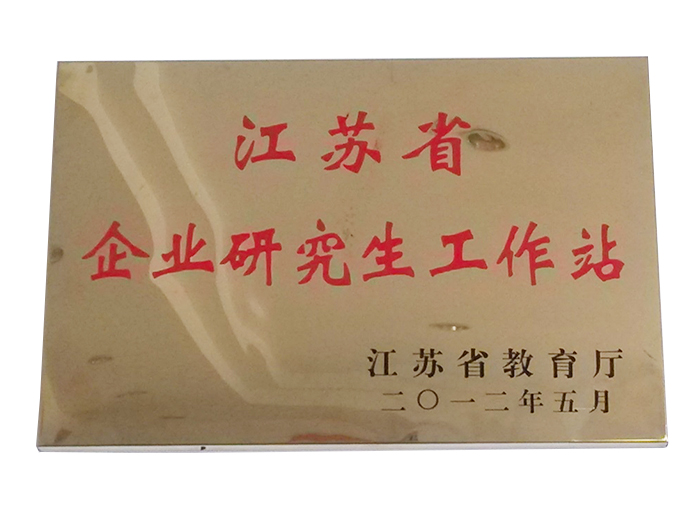 江苏省
企业研究生工作站
江苏省教育厅
二〇一二年五月